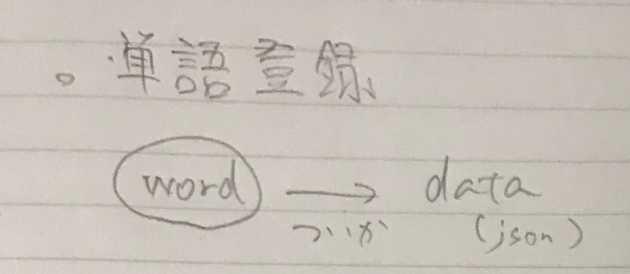 。単語登録
word → data
ついか (json)